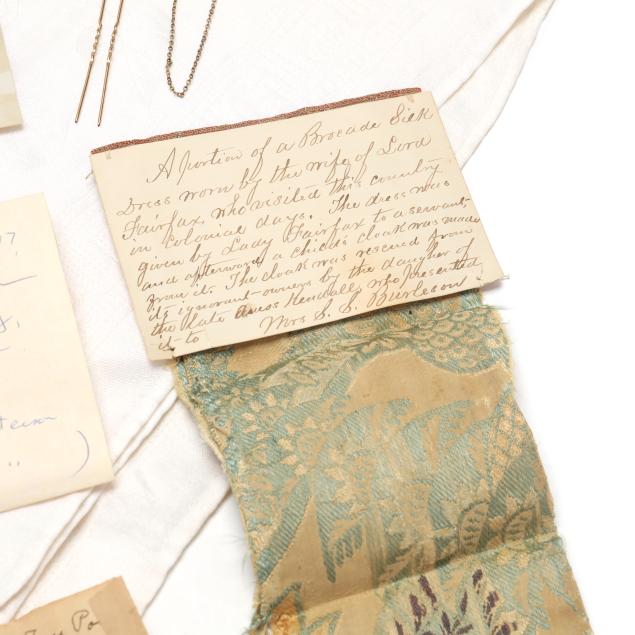 A portion of a Brocade Silk
Dress worn by the wife of Lord
Fairfax, who visited this country
in Colonial days. The dress was
given by Lady Fairfax to a servant
and afterward a child's cloak was made
from it. The cloak was rescued from
its ignorant owners by the daughter of
the late Amos Kendall, who presented
it to Mrs S. S. Burleson